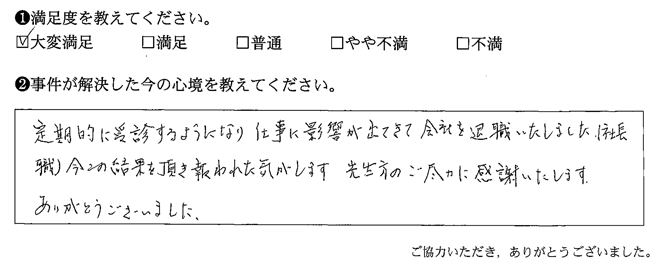 ❶満足度を教えてください。
☑大変満足 □満足 □普通 □やや不満 □不満
❷事件が解決した今の心境を教えてください。
定期的に受診するようになり 仕事に影響が出てきて 会社を退職いたしました(店長
職) 今この結果を頂き報われた気がします 先生方のご尽力に感謝いたします
ありがとうございました、
ご協力いただき，ありがとうございました。